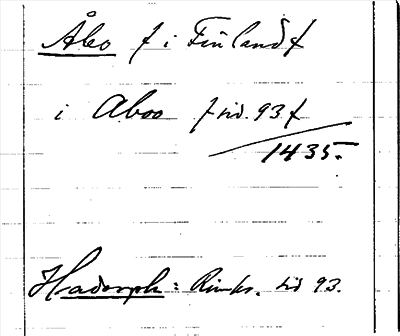 Åbo f i Finland f
i Aboo f sid. 93 f
1435.
Hadorph: Rimkr. sid 93.